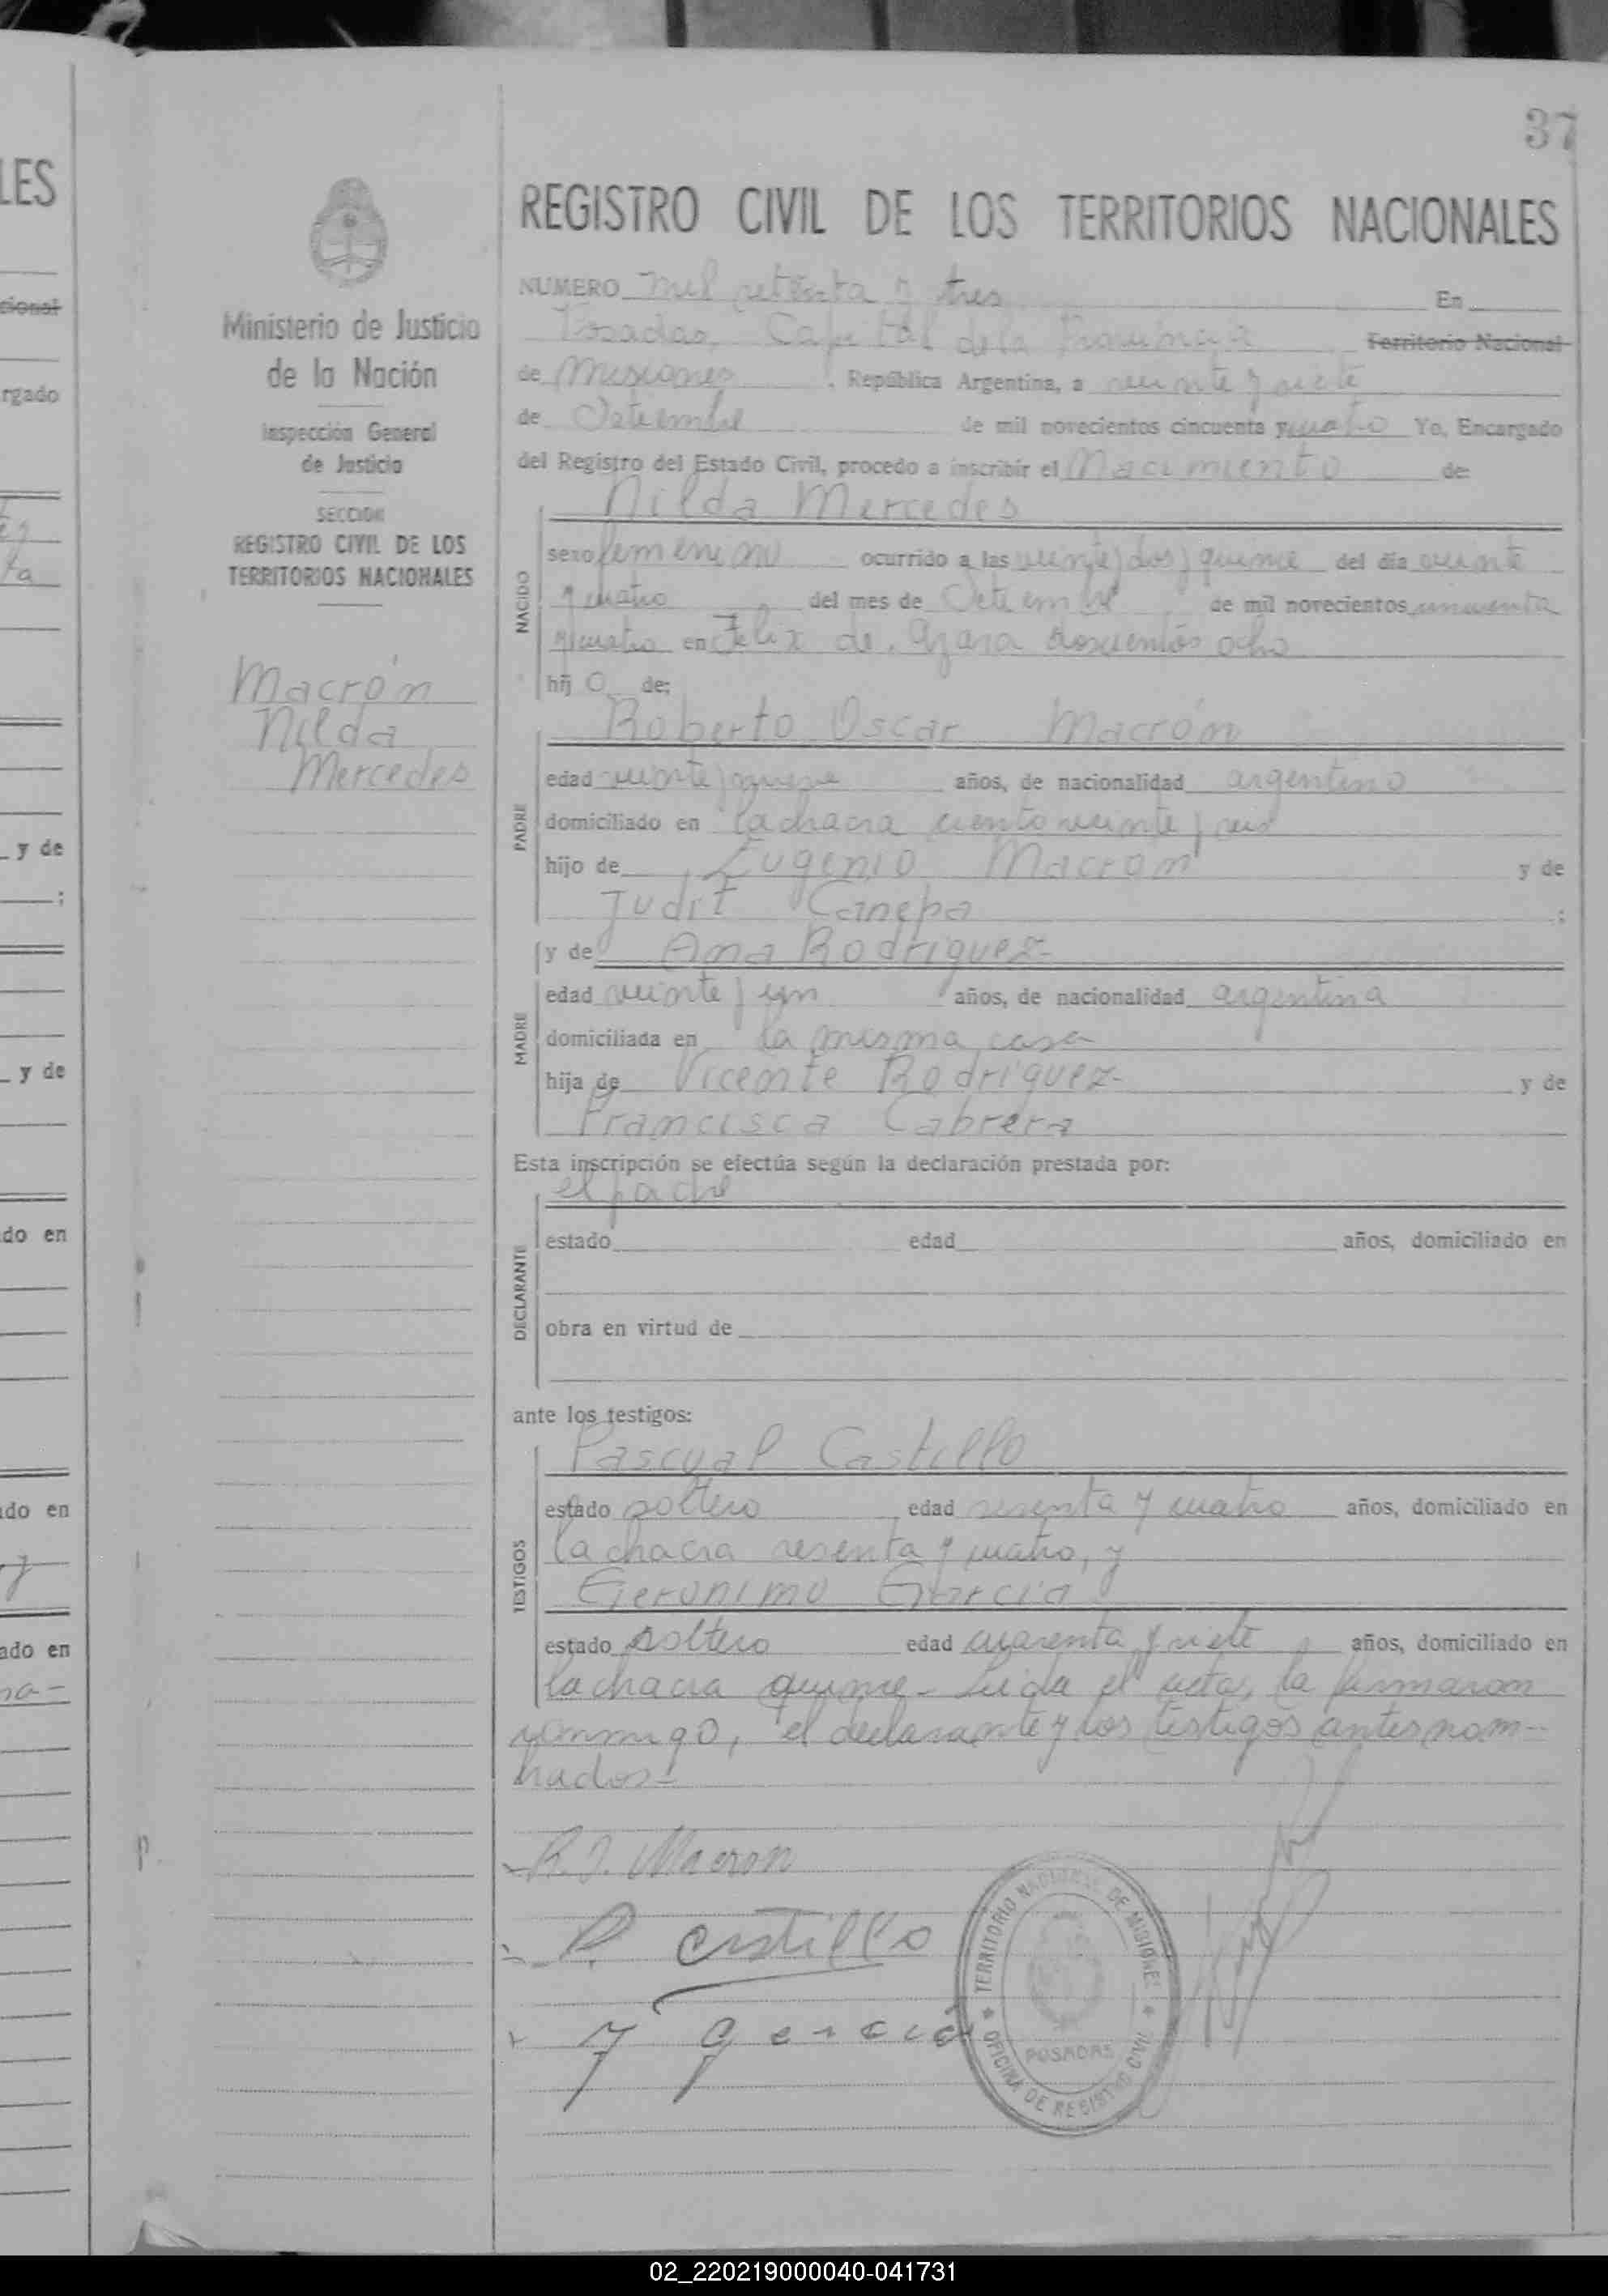 37
LES
REGISTRO CIVIL DE LOS TERRITORIOS NACIONALES
Ministerio de Justicia
de la Nación
Inspección General
de Justicia
SECCION
REGISTRO CIVIL DE LOS
TERRITORIOS NACIONALES
Macrón
Nilda
Mercedes
NUMERO mil setenta y tres En
Posadas, Capital de la Provincia Territorio Nacional
de Misiones, República Argentina, a veinte y siete
de Setiembre de mil novecientos cincuenta y cuatro Yo, Encargado
del Registro del Estado Civil, procedo a inscribir el Nacimiento de:
NACIDO
Nilda Mercedes
sexo femenino ocurrido a las veinte y dos y quince del día veinte
y cuatro del mes de Setiembre de mil novecientos cincuenta
y cuatro en Felix de Azara doscientos ocho
hij o de:
PADRE
Roberto Oscar Macrón
edad veinte y nueve años, de nacionalidad argentino
domiciliado en la chacra ciento veinte y seis
hijo de Eugenio Macrón y de
Judit Canepa ;
MADRE
y de Ana Rodriguez
edad veinte y un años, de nacionalidad argentina
domiciliada en la misma casa
hija de Vicente Rodriguez y de
Francisca Cabrera
Esta inscripción se efectúa según la declaración prestada por:
DECLARANTE
el padre
estado edad años, domiciliado en
obra en virtud de
ante los testigos:
TESTIGOS
Pascual Castillo
estado soltero edad sesenta y cuatro años, domiciliado en
la chacra sesenta y cuatro, y
Geronimo Garcia
estado soltero edad cuarenta y siete años, domiciliado en
la chacra quince - Leida el acta, la firmaron
conmigo, el declarante y los testigos antes nom-
brados-
R. O. Macron
P. Castillo
J garcia
TERRITORIO NACIONAL DE MISIONES
POSADAS
OFICINA DE REGISTRO CIVIL
cional
rgado
ta
y de
;
y de
do en
do en
y
ado en
na-
02_220219000040-041731